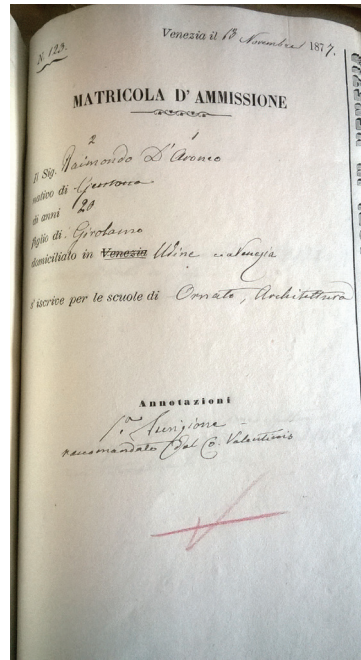 N. 123.
Venezia il 13 Novembre 1877.
MATRICOLA D' AMMISSIONE
2 1
Il Sig. Raimondo D'Aronco
nativo di Gemona
di anni 20
figlio di Girolamo
domiciliato in Venezia Udine e Venezia
s' iscrive per le scuole di Ornato, Architettura
Annotazioni
raccomandato dal Co. Valentinis